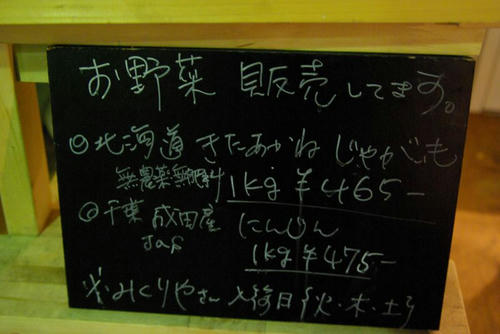 お野菜 販売してます。
◎北海道 きたあかね じゃがいも
無農薬無肥料 1kg ¥465-
◎千葉 成田産 にんじん
JAS 1kg ¥475-
※みくりやさん 入荷日 火・木・土